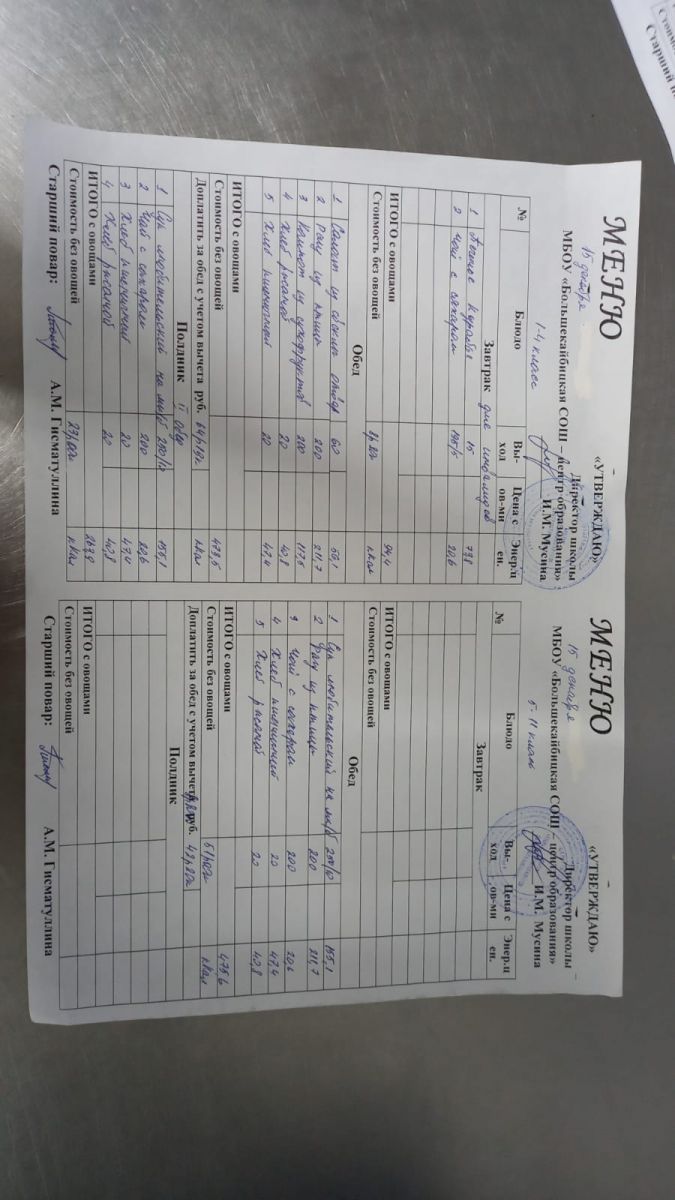 МЕНЮ
15 декабря
«УТВЕРЖДАЮ»
Директор школы
МБОУ «Большекайбицкая СОШ – центр образования»
И.М. Мусина
1-4 класс
№ Блюдо Вы-ход Цена с ов-ми Энер.ц ен.
Завтрак для инвалидов
1 Печенье курабье 15 73,8
2 Чай с сахаром 195/5 20,6
ИТОГО с овощами 94,4
Стоимость без овощей ккал
Обед
1 Салат из свеклы 60
2 Рагу из птицы 200 211,7
3 Компот из сухофруктов 200 117,5
4 Хлеб ржаной 20 40,8
5 Хлеб пшеничный 20 47,4
ИТОГО с овощами 473,5
Стоимость без овощей ккал
Доплатить за обед с учетом вычета руб. 64р14к
Полдник II обед
1 Суп любительский на м/б 200/10 155,1
2 Чай с сахаром 200 20,6
3 Хлеб пшеничный 20 47,4
4 Хлеб ржаной 20 40,8
ИТОГО с овощами 263,9
Стоимость без овощей 23р60к ккал
Старший повар: А.М. Гисматуллина
МЕНЮ
15 декабря
«УТВЕРЖДАЮ»
Директор школы
МБОУ «Большекайбицкая СОШ – центр образования»
И.М. Мусина
5-11 класс
№ Блюдо Вы-ход Цена с ов-ми Энер.ц ен.
Завтрак
ИТОГО с овощами
Стоимость без овощей
Обед
1 Суп любительский на м/б 200/10 155,1
2 Рагу из птицы 200 211,7
3 Чай с сахаром 200 20,6
4 Хлеб пшеничный 20 47,4
5 Хлеб ржаной 20 40,8
ИТОГО с овощами 475,6
Стоимость без овощей ккал
Доплатить за обед с учетом вычета руб. 42р20к
Полдник
ИТОГО с овощами
Стоимость без овощей
Старший повар: А.М. Гисматуллина
Старший п